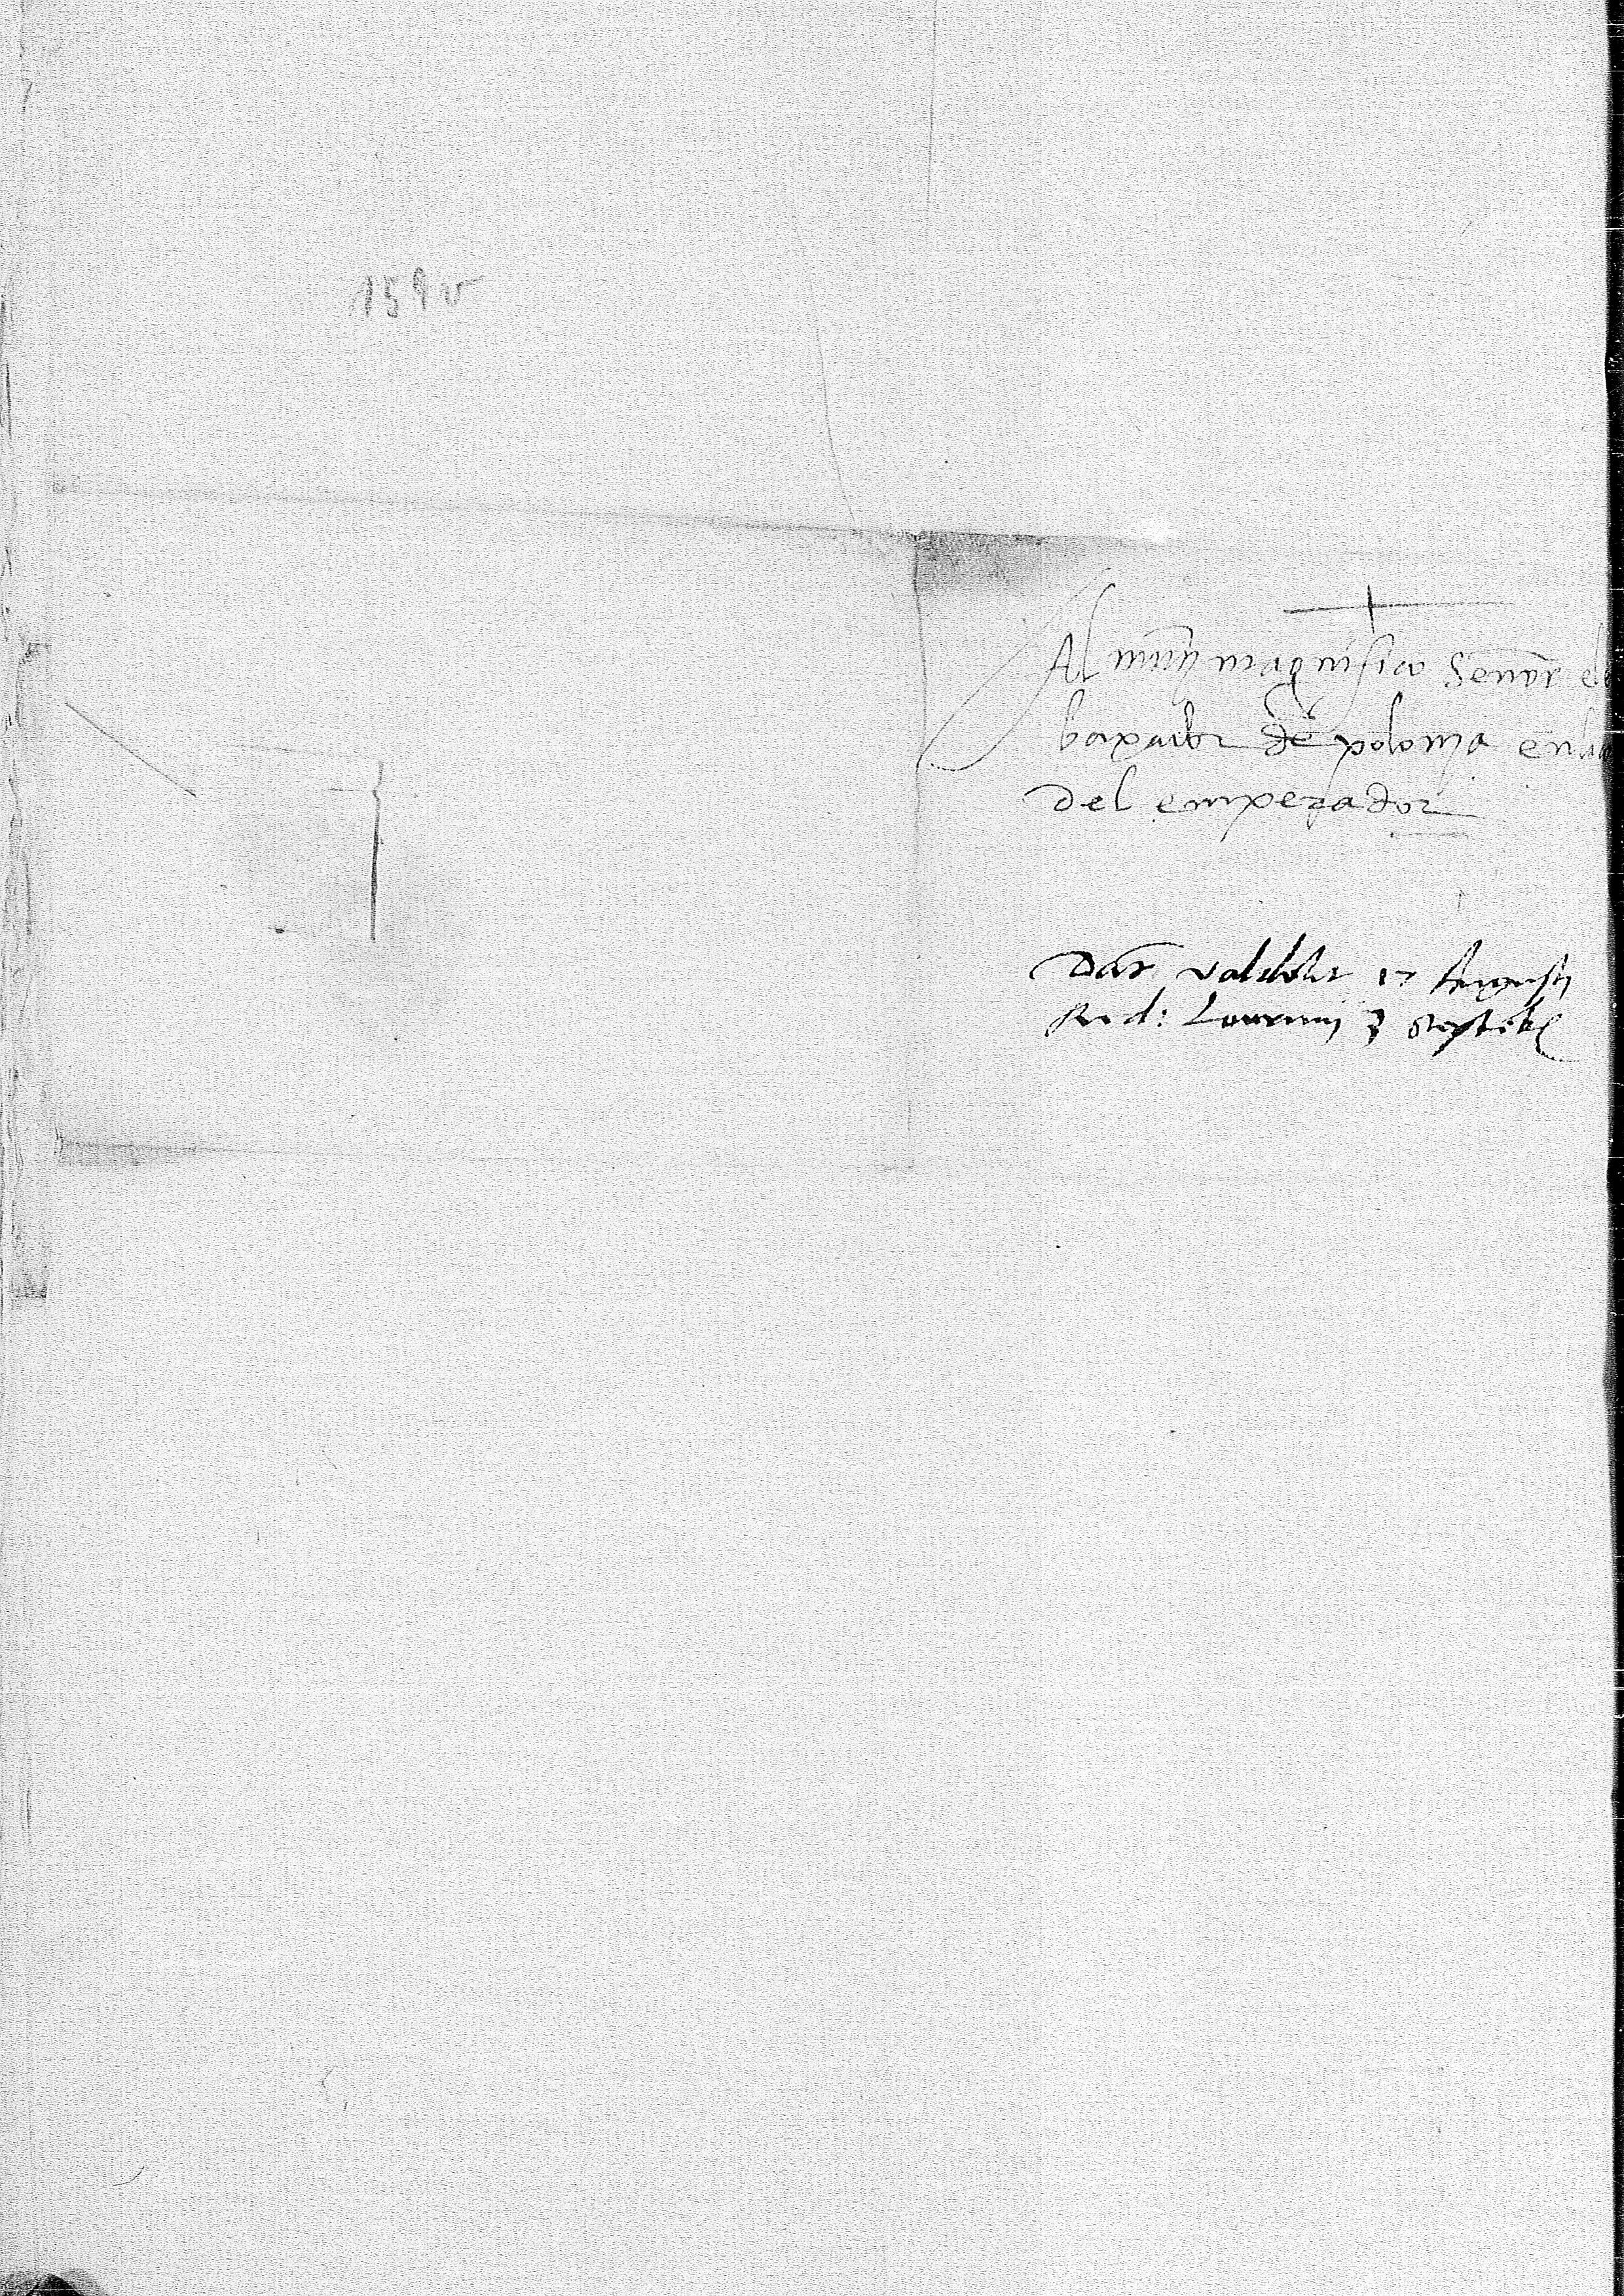 159v
Al muy magnifico Señor el
baxador de polonja en la
del emperador
Dat. valdolit 17 Augusti
Red: Lovanij 3 Septeb